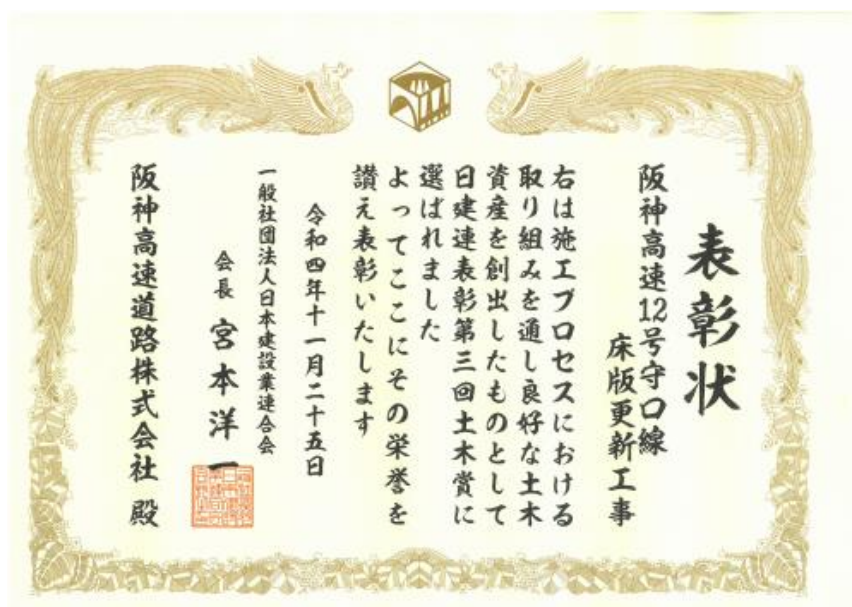 表彰状
阪神高速12号守口線
床版更新工事
右は施工プロセスにおける
取り組みを通し良好な土木
資産を創出したものとして
日建連表彰第三回土木賞に
選ばれました
よってここにその栄誉を
讃え表彰いたします
令和四年十一月二十五日
一般社団法人日本建設業連合会
会長 宮本洋一
阪神高速道路株式会社 殿